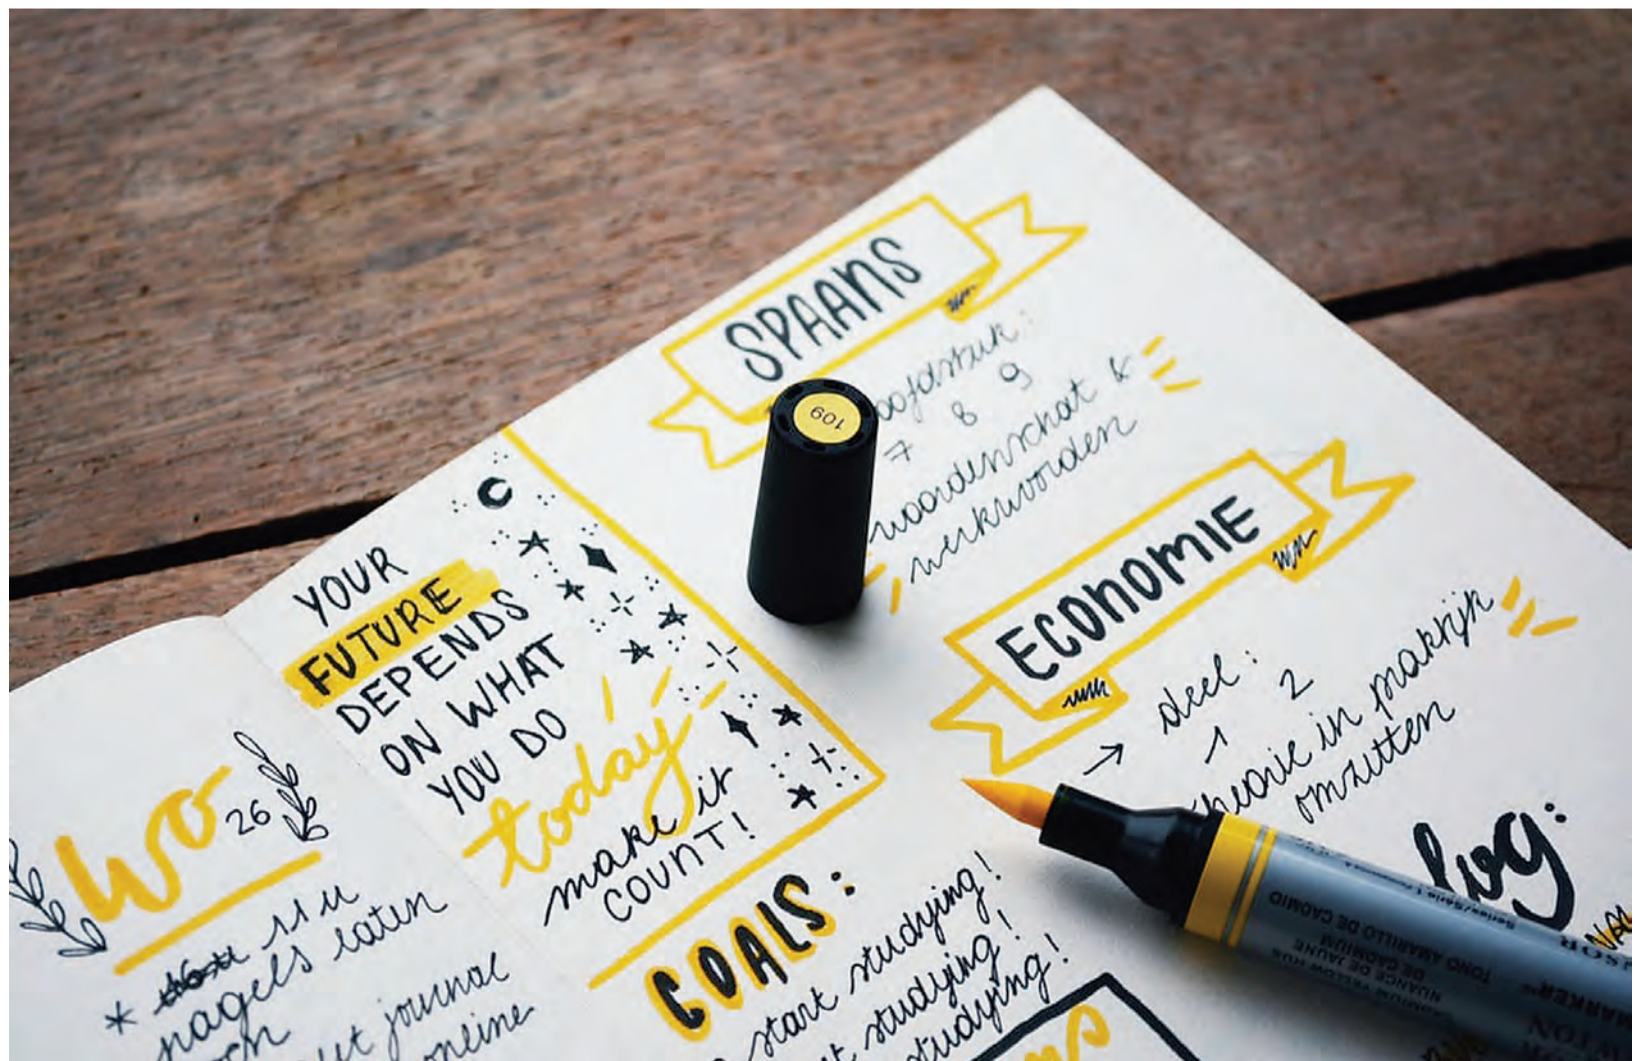 SPAANS
7 8 9
woordenschat &
werkwoorden
ECONOMIE
→ deel:
1 2
theorie in praktijk
omzetten
YOUR
FUTURE
DEPENDS
ON WHAT
YOU DO
today
make it
COUNT!
wo 26
* 11u
nagels laten
journal
online
GOALS:
start studying!
studying!
studying!
log:
109
CADMIUM YELLOW HUE
NUANCE DE JAUNE
DE CADMIUM
TONO AMARILLO DE CADMIO
MARKER